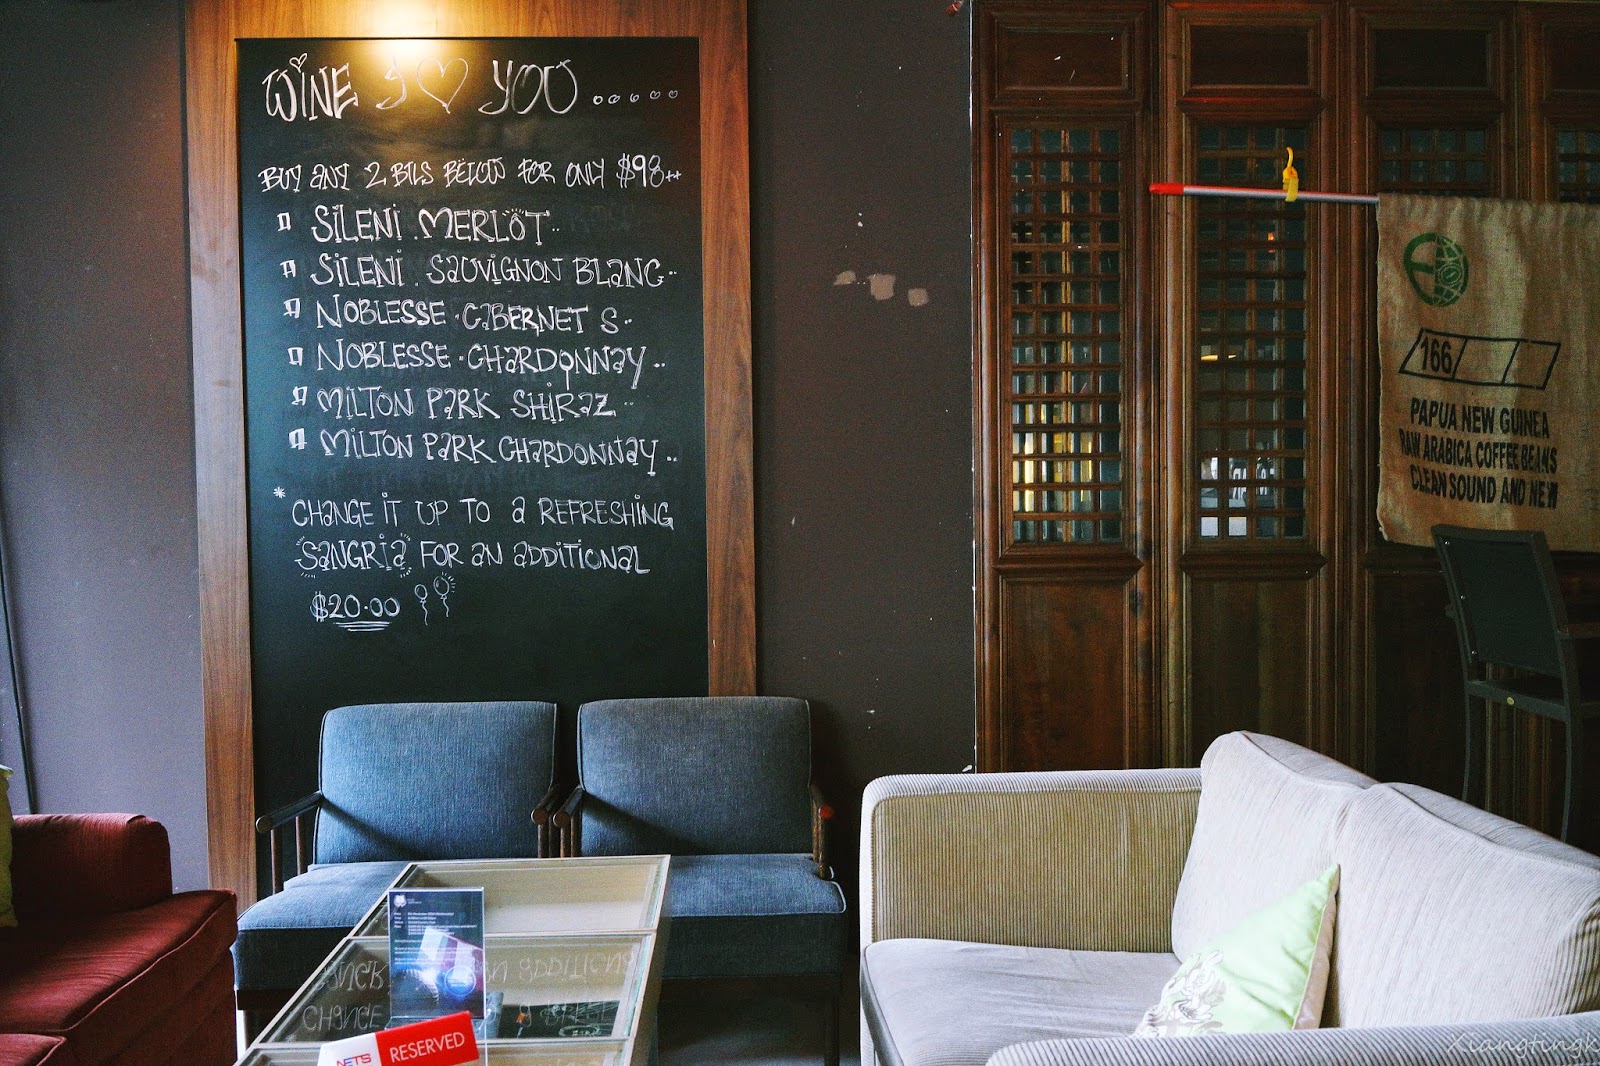 WINE I ♡ YOU .....
BUY ANY 2 BTLS BELOW FOR ONLY $98++
SILENI . MERLOT..
SILENI . SAUVIGNON BLANC..
NOBLESSE . CABERNET S..
NOBLESSE . CHARDONNAY..
MILTON PARK SHIRAZ..
MILTON PARK CHARDONNAY..
* CHANGE IT UP TO a REFRESHING
SANGRIA FOR AN ADDITIONAL
$20.00
166
PAPUA NEW GUINEA
RAW ARABICA COFFEE BEANS
CLEAN SOUND AND NEW
NETS RESERVED
Xiangtingk